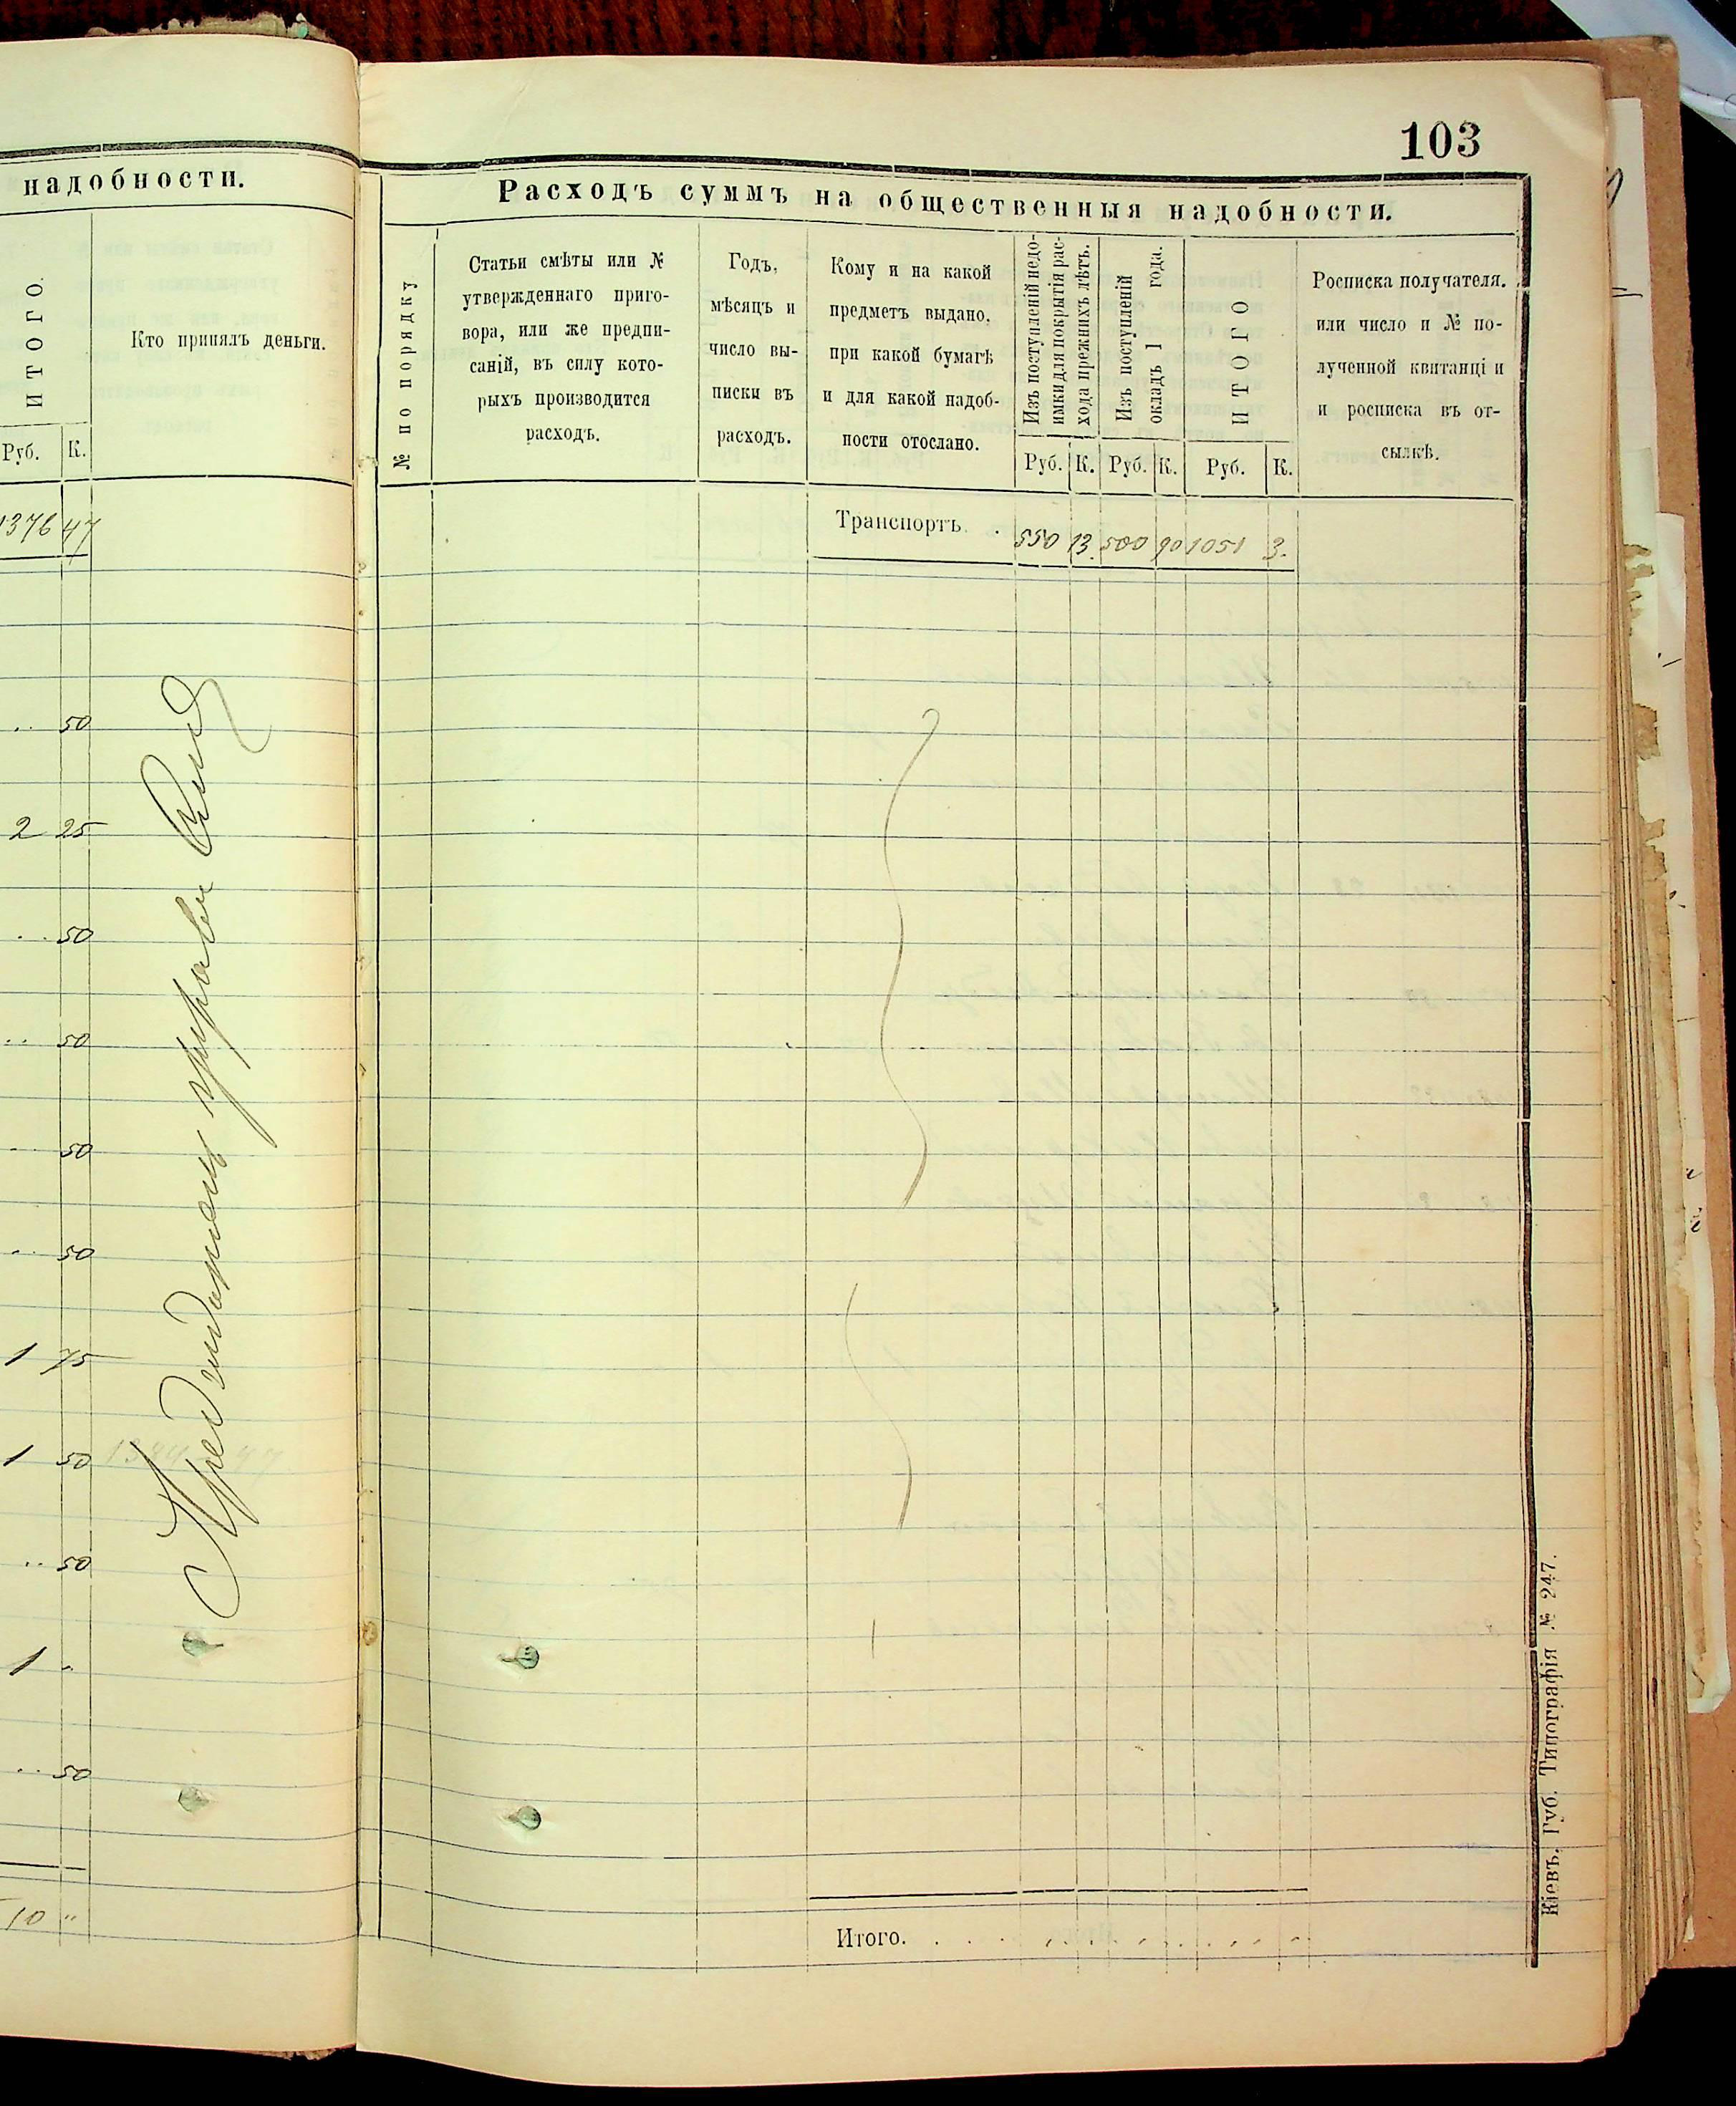 надобности.
ИТОГО.
Кто принялъ деньги.
Руб. К.
1376 47
.. 50
2 25
.. 50
.. 50
.. 50
.. 50
1 75
1 50
.. 50
1 "
.. 50
10 "
Предсѣдатель управы
103
Расходъ суммъ на общественныя надобности.
№ по порядку
Статьи смѣты или №
утвержденнаго приго-
вора, или же предпи-
саній, въ силу кото-
рыхъ производится
расходъ.
Годъ,
мѣсяцъ и
число вы-
писки въ
расходъ.
Кому и на какой
предметъ выдано,
при какой бумагѣ
и для какой надоб-
ности отослано.
Изъ поступленій недо-
имки для покрытія рас-
хода прежнихъ лѣтъ.
Изъ поступленій
окладъ 1 года.
ИТОГО
Росписка получателя.
или число и № по-
лученной квитанці и
и росписка въ от-
сылкѣ.
Руб. К. Руб. К. Руб. К.
Транспортъ. . 550 13. 500 90 1051 3.
Итого. . . . . . . . . . . . . .
Кіевъ. Губ. Типографія № 247.